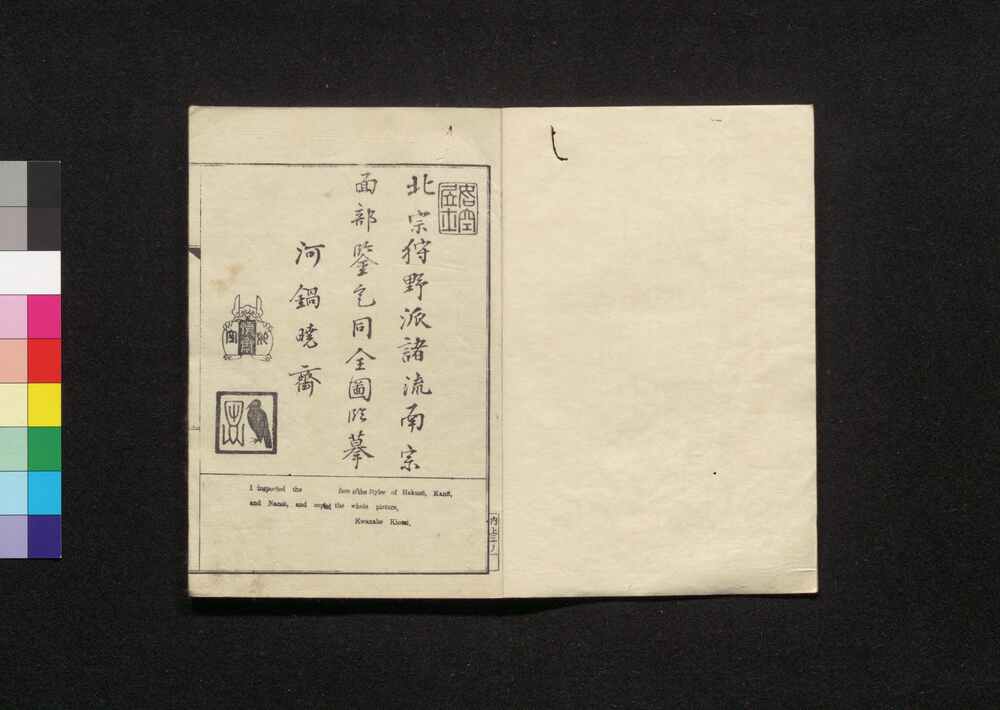 北宗狩野派諸流南宗
面部鑒定同全圖臨摹
河鍋曉齋
I inspected the face of the Styles of Hokusō, Kanō,
and Nansō, and copied the whole picture,
Kwanabe Kiosai,
内上三ノ